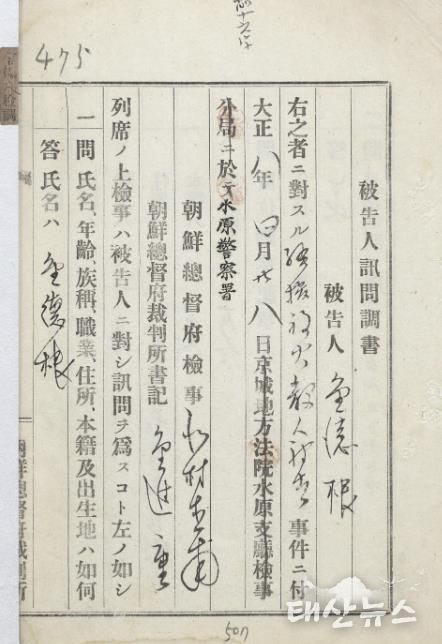 475
被告人訊問調書
被告人 金德根
右之者ニ對スル騷擾放火殺人 事件ニ付
大正八年四月廿八日京城地方法院水原支廳檢事
分局ニ於テ水原警察署
朝鮮總督府檢事
朝鮮總督府裁判所書記
列席ノ上檢事ハ被告人ニ對シ訊問ヲ爲スコト左ノ如シ
一問 氏名、年齡、族稱、職業、住所、本籍及出生地ハ如何
答 氏名ハ 金德根
朝鮮總督府裁判所
507
태산뉴스